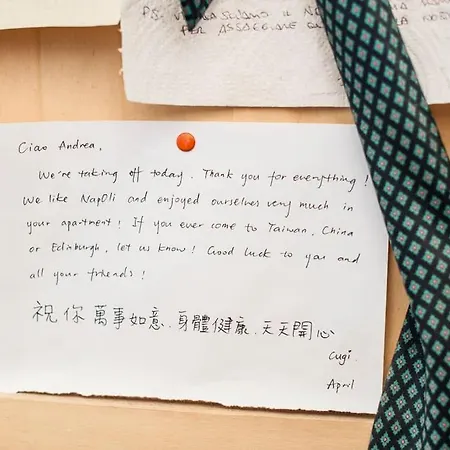 PS:
PER ASSAGGIARE
Ciao Andrea,
We're taking off today. Thank you for everything!
We like Napoli and enjoyed ourselves very much in
your apartment! If you ever come to Taiwan, China
or Edinburgh, let us know! Good luck to you and
all your friends!
祝你萬事如意、身體健康、天天開心
Cugi.
April